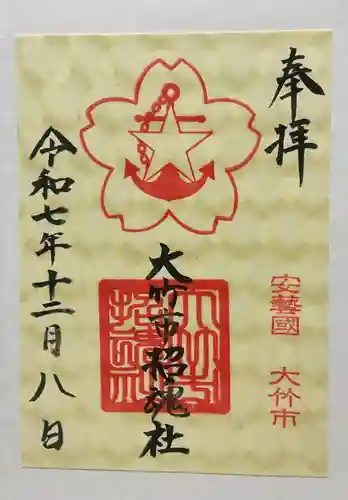 奉拝
安藝國　大竹市
大竹市招魂社
令和七年十二月八日